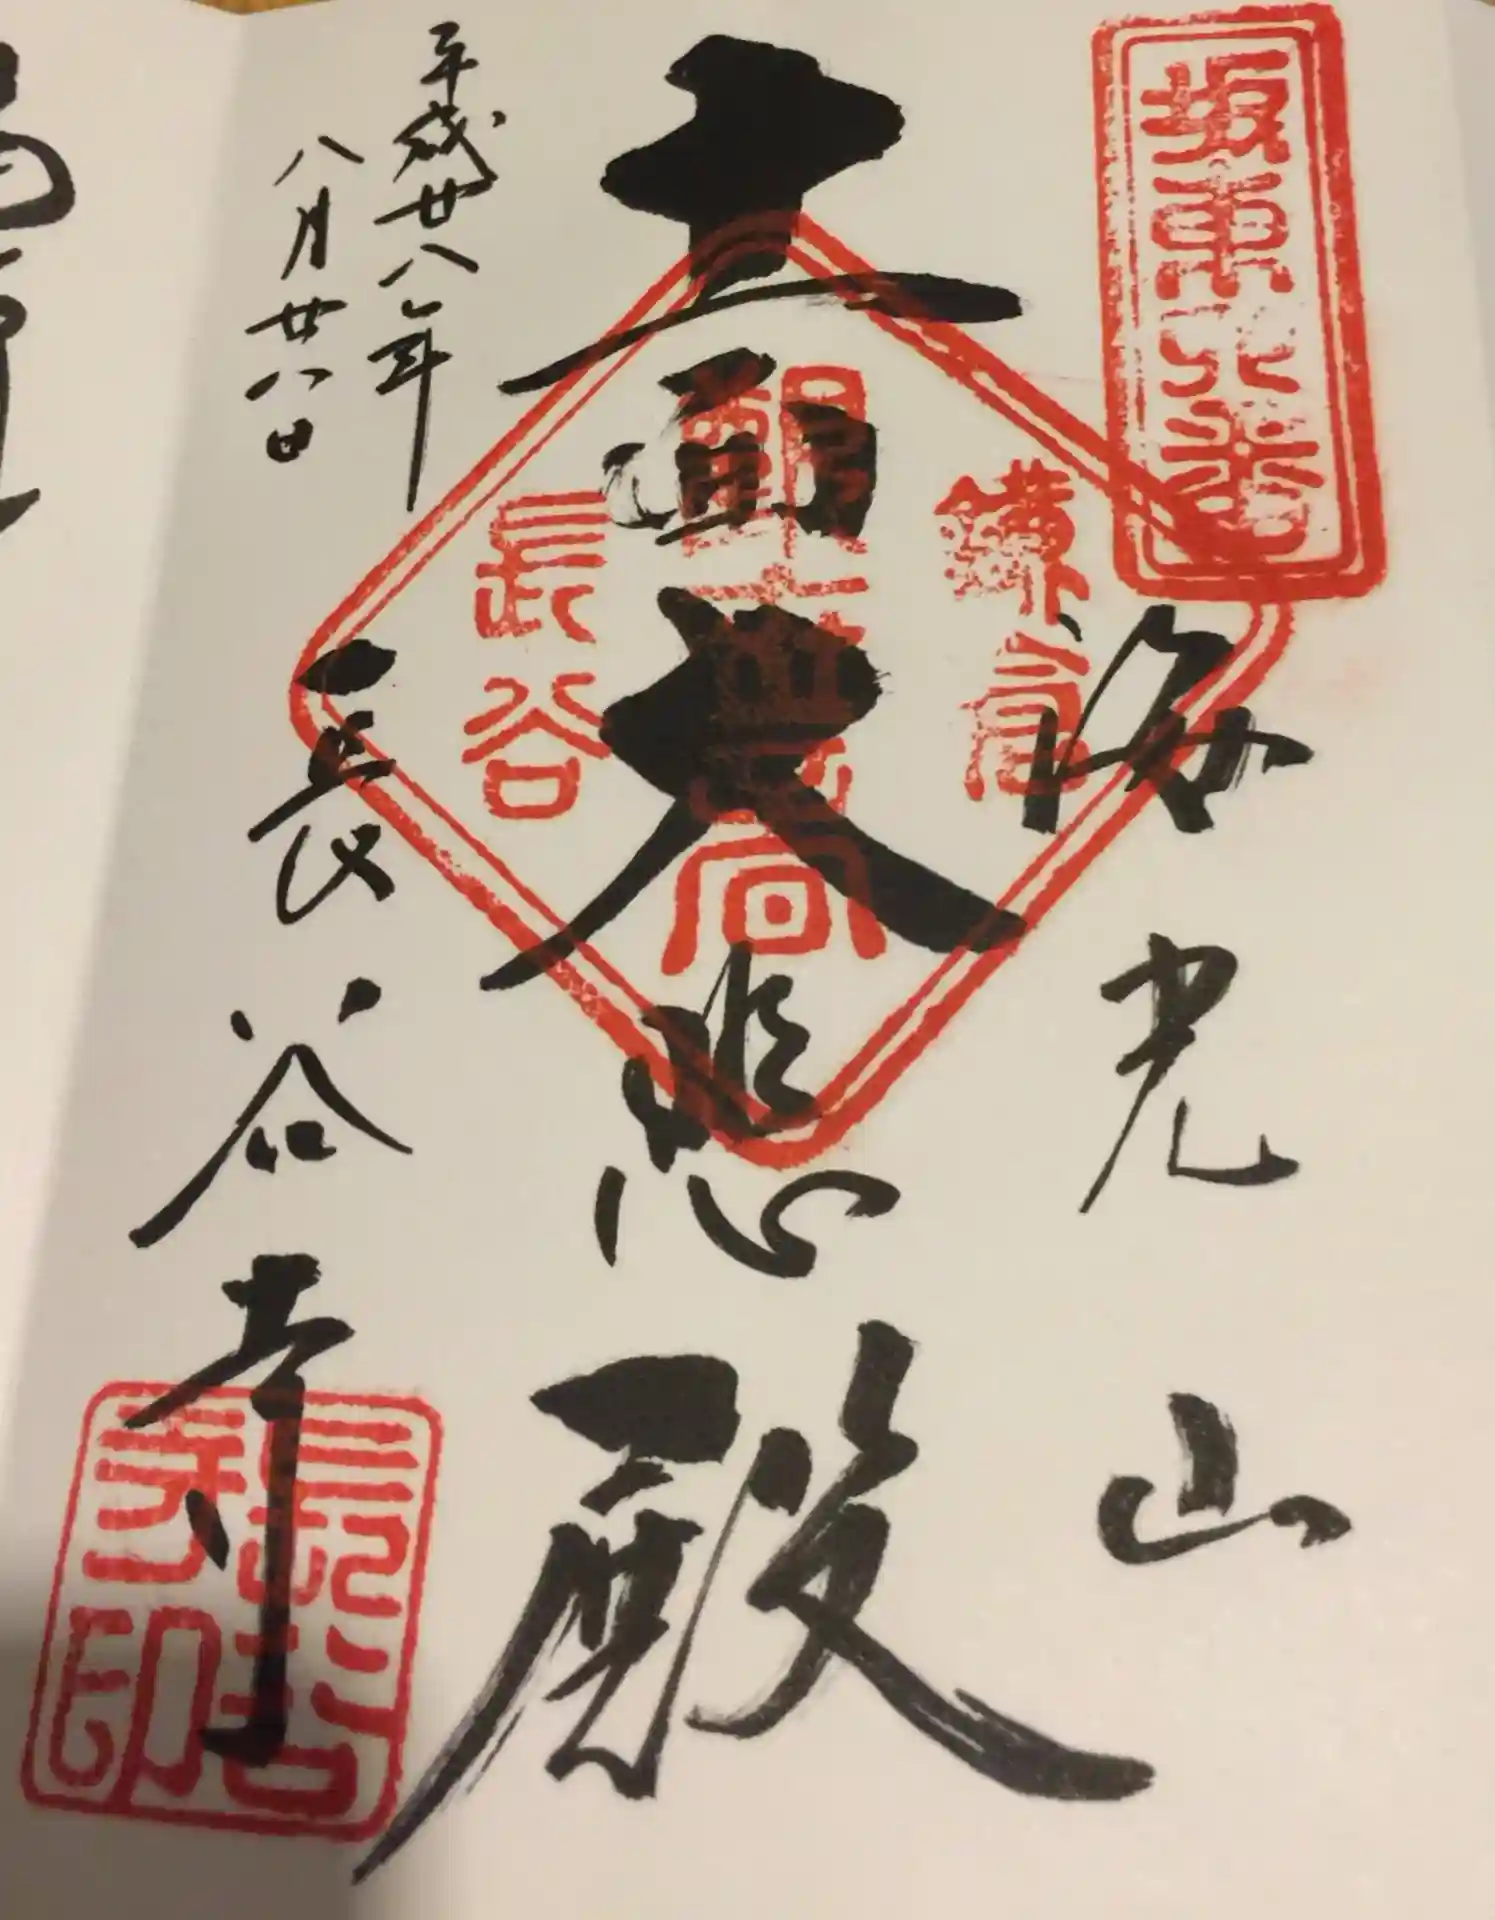 坂東四番
海光山
十一面大悲殿
鎌倉
長谷
長谷寺
平成廿八年
八月廿八日
長谷寺印